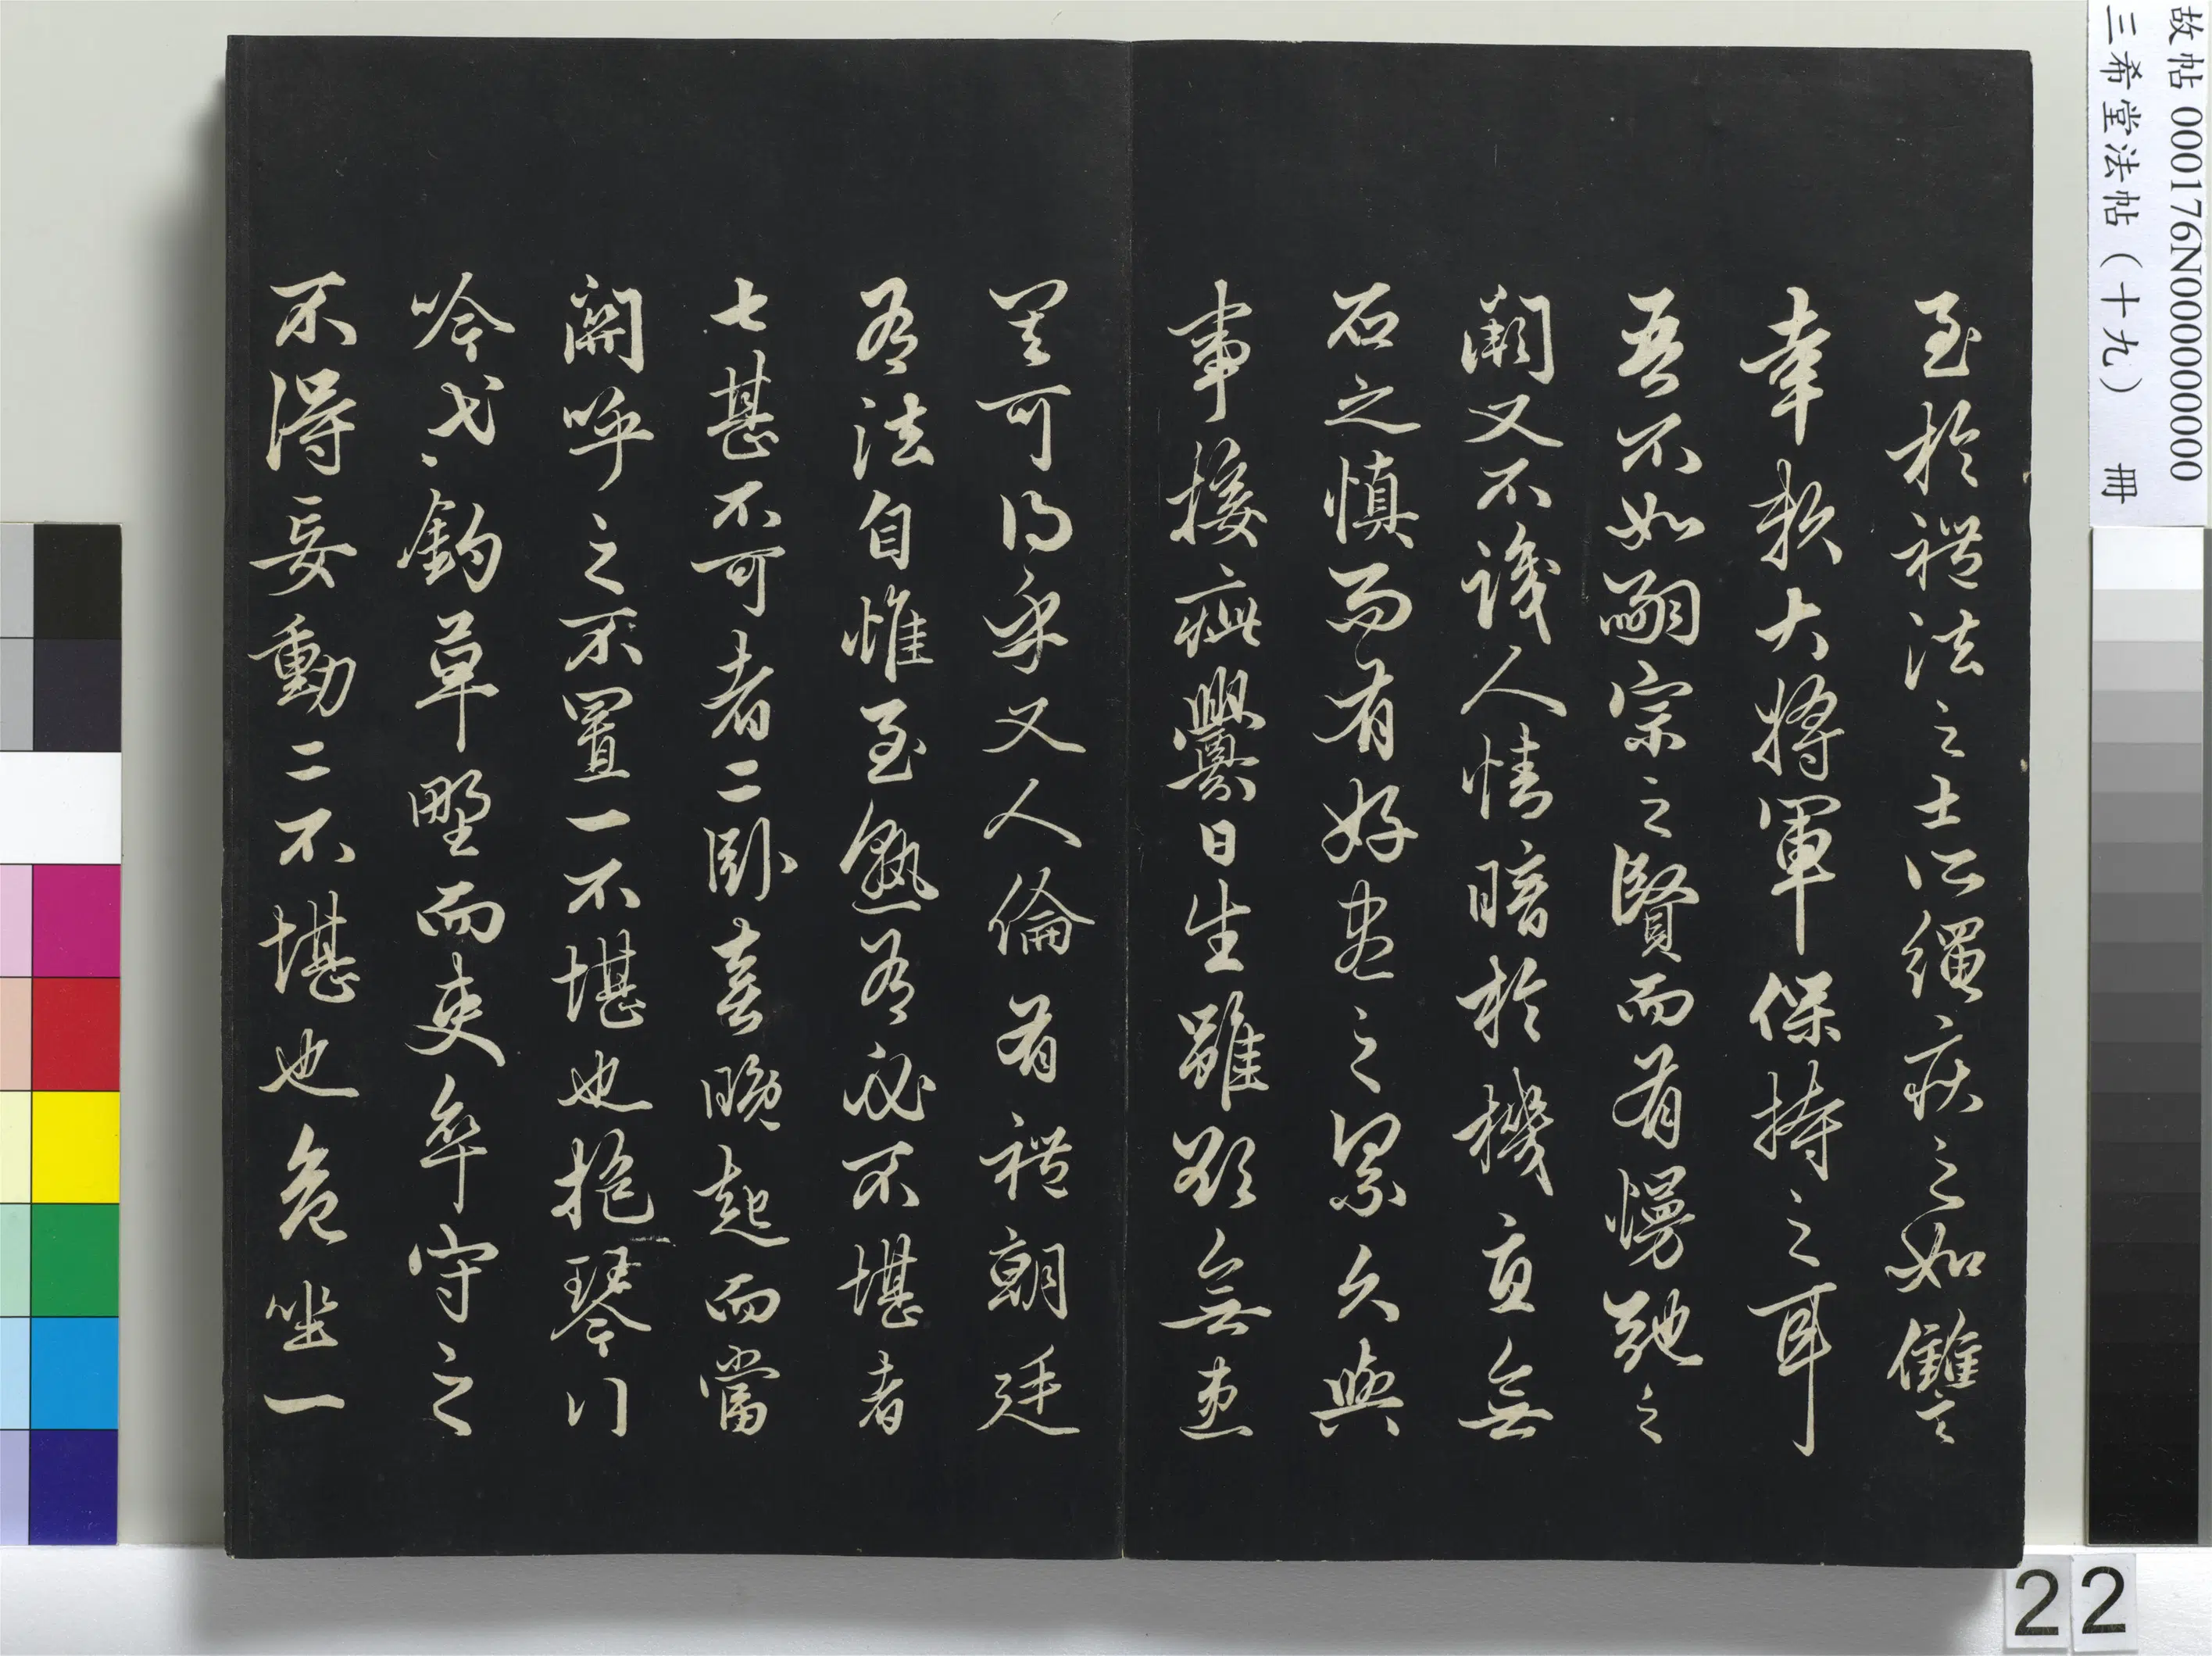 故帖 000176N000000000
三希堂法帖（十九） 冊
至於禮法之士所繩疾之如讎
幸賴大將軍保持之耳
吾不如嗣宗之賢而有慢弛之
闕又不識人情暗於機宜無
石之慎而有好盡之累久與
事接疵釁日生雖欲無患
其可得乎又人倫有禮朝廷
有法自惟至熟有必不堪者
七甚不可者二臥喜晚起而當
關呼之不置一不堪也抱琴行
吟弋釣草野而吏卒守之
不得妄動二不堪也危坐一
22